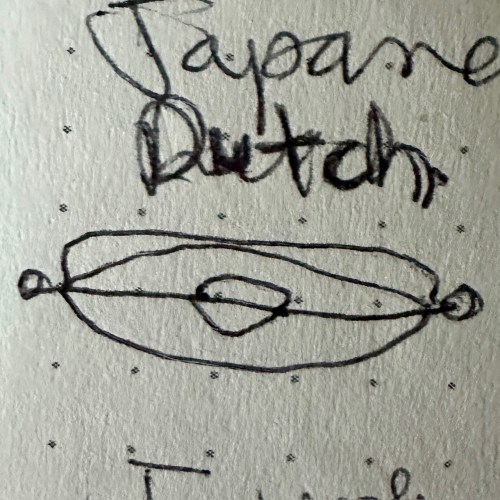 Japane
Dutch